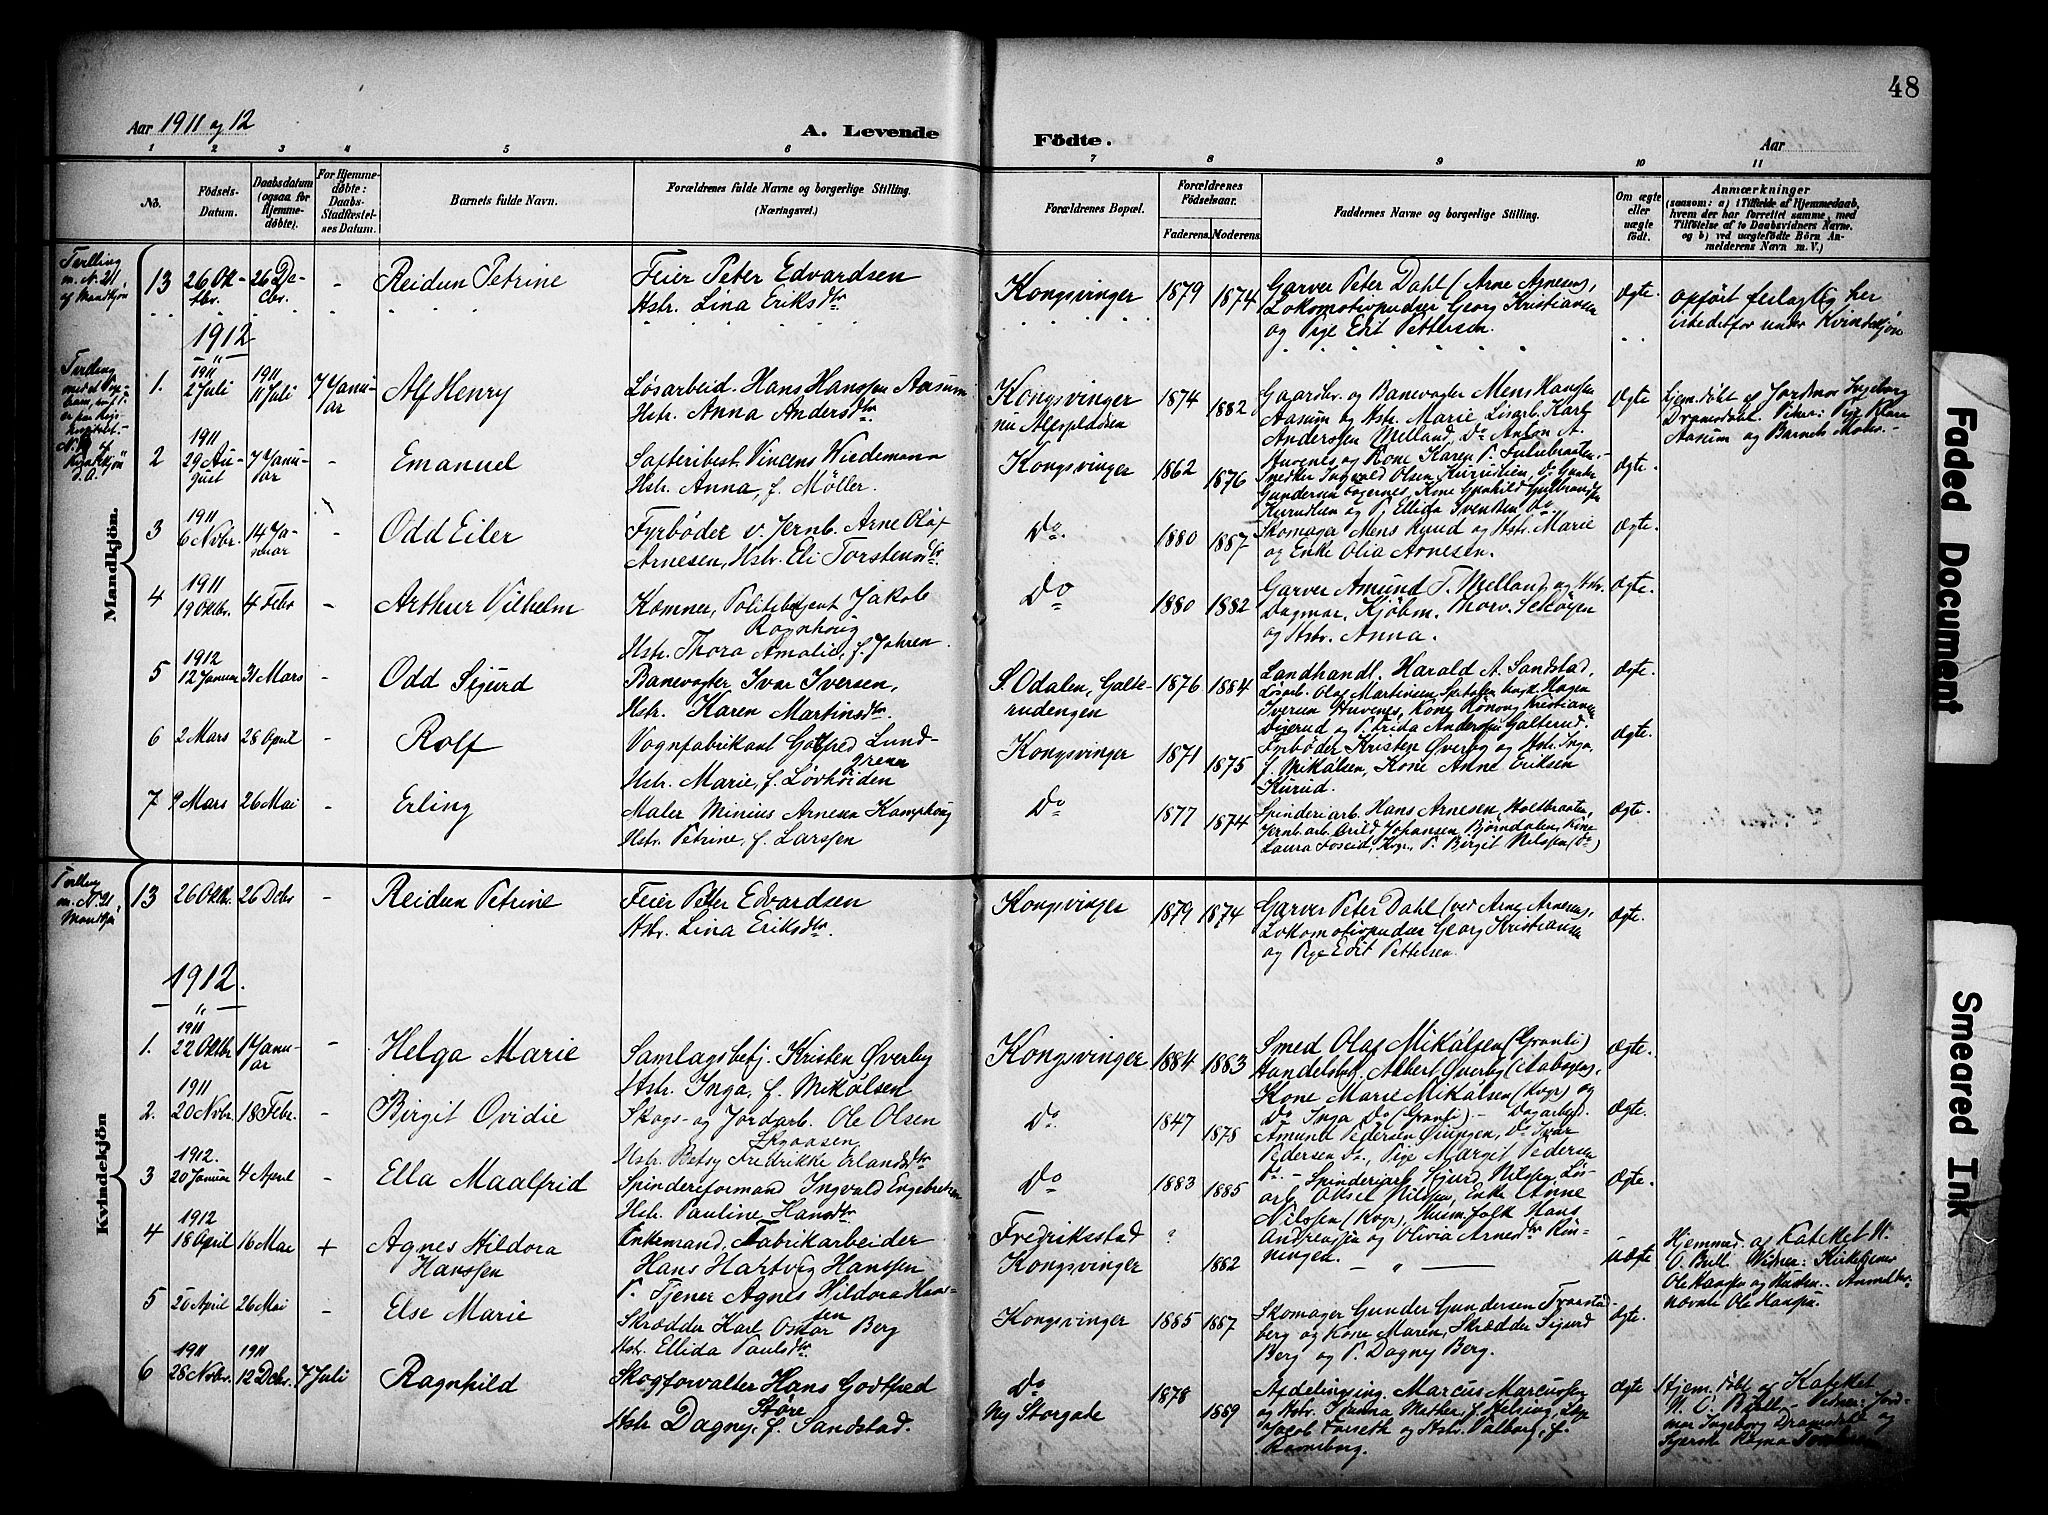 48
Aar 1911 og 12
A. Levende
Födte.
Aar
1 2 3 4 5 6 7 8 9 10 11
No.
Födsels-Datum.
Daabsdatum (ogsaa for Hjemmedöbte).
For Hjemmedöbte: Daabs-Stadfæstelses Datum.
Barnets fulde Navn.
Forældrenes fulde Navne og borgerlige Stilling.
(Næringsvei.)
Forældrenes Bopæl.
Forældrenes Födselsaar.
Faderens. Moderens.
Faddernes Navne og borgerlige Stilling.
Om ægte eller uægte födt.
Anmærkninger
(saasom: a) i Tilfælde af Hjemmedaab,
hvem der har forrettet samme, med
Tilföielse af to Daabsvidners Navne.
og b) ved uægtefödte Börn An-
melderens Navn m. V.)
Mandkjön.
Tvilling m. N. 21 af Mandkjön
13 26 Oktbr. 26 Decbr. - Reidun Petrine
Feier Peter Edvardsen
Hstr. Lina Eriksdtr
Kongsvinger 1879 1874
Garver Peter Dahl (Arne Arnesen),
Lokomotivpudser Georg Kristiansen
og Pige Edit Pettersen.
Ægte.
opfört feilagtig her
istedetfor under Kvindekjön
1912
1. 1911 2 Juli 1911 11 Juli 7 Januar Alf Henry
Løsarbeid. Hans Hanssen Aasum
Hstr. Anna Andersdtr
Kongsvinger
1874 1882
Gaardbr. og Banevagter Mens Hansen
Aasum og Hstr. Marie, Løsarb. Karl
Anderssen Melland, Do Anton A.
Huvenes og Kone Karen P.
Ægte
Hjem.døbt af Jordmor Ingeborg
Dramsdahl.
Aasum og Barnets Moder.
2 1911 29 August 7 Januar - Emanuel
Vincens Wiedemann
Hstr. Anna, f. Møller.
Kongsvinger 1862 1876
Snedker Ingvald Olsen
Ægte.
3 1911 6 Novbr. 14 Januar - Odd Eiler
Fyrbøder v. Jernb. Arne Olaf
Arnesen, Hstr. Eli Torstensdtr.
Do. 1880 1887
Skomager Mens Ruud og Hstr. Marie
og Enke Olia Arnesen.
Ægte.
4 1911 19 Oktbr. 4 Febr - Arthur Vilhelm
Kæmner, Politibetjent Jakob
Rognhaug
Hstr. Thora Amalie, f. Jahren.
Do 1880 1882
Garver Amund T. Melland og Hstr.
Dagmar, Kjöbm. Thorv.
og Hstr. Anna.
Ægte.
5 1912 12 Januar 31 Mars - Odd Sigurd
Banevagter Ivar Iversen,
Hstr. Karen Martinsdtr
S. Odalen, Galte-
rudengen
1876 1884
Landhandl. Harald A. Sandstad,
Løsarb. Olaf Martinsen,
Iversen Huvenes, Kone Rønaug Kristiansen
og P. Frida Andersen Galterud.
Ægte.
6 2 Mars 28 April - Rolf
Vognfabrikant Gotfred Lund-
green
Hstr. Marie, f. Løvhøiden
Kongsvinger 1871 1875
Fyrbøder Kristen Øverby og Hstr. Inga,
f. Mikalsen, Kone Anne Eriksen
Kurud.
Ægte.
7 9 Mars 26 Mai - Erling
Maler Minius Arnesen Kamphaug
Hstr. Petrine, f. Larssen
Do 1877 1874
Spinderiarb. Hans Arnesen, Holtbraaten,
Jernb.arb. Arild Johansen, Bjørndalen, Kone
Laura Foseid, Kvgr., P. Birgit Nilssen (Do)
Ægte.
Kvindekjön
Tvilling m. N. 21, Mandkjøn
13 26 Oktbr. 26 Decbr - Reidun Petrine
Feier Peter Edvardsen
Hstr. Lina Eriksdtr.
Kongsvinger 1879 1874
Garver Peter Dahl (ved Arne Arnesen),
Lokomotivpudser Georg Kristiansen
og Pige Edit Pettersen.
Ægte.
1912.
1. 1911 22 Oktbr 1 Januar - Helga Marie
Samlagsbetj. Kristen Øverby
Hstr. Inga, f. Mikalsen
Kongsvinger 1884 1883
Smed Olaf Mikalsen (Granli)
Handelsb. Albert Øverby (Aabogen),
Kone Marie Mikalsen (Kvgr) og
Do Inga Do (Granli). -
Ægte.
2. 1911 20 Novbr. 18 Febr. - Birgit Ovidie
Skogs- og Jordarb. Ole Olsen
Skaasen
Hstr. Betsy Fredrikke Erlandsdtr
Do. 1847 1878
Dagarbeid.
Amund Pedersen Øiungen, Do Ivar
Pedersen Do, Pige Margit Pedersen
Do -
Ægte.
3 1912. 20 Januar 4 April - Ella Maalfrid
Spinderiformand Ingvald Engebretsen
Hstr. Pauline Hansdtr
Do 1883 1885
Spinderiarb. Sjurd Nilssen, Løs-
arb. Aksel Nilssen, Enke Anne
Nilssen (Kvgr), Huusmfolk Hans
Andreassen og Olivia Arnesdtr Røn-
ningen.
Ægte.
4 1912 18 April 16 Mai + Agnes Hildora
Hanssen
Enkemand, Fabrikarbeider
Hans Hartvig Hanssen
P. Tjener Agnes Hildora Hans-
sen
Fredriksstad ?
Kongsvinger 1882
— " —
uægte
Hjemmed. af Kateket N.
O. Bull. Vidner: Kirketjener
Ole Haagsen og Hustru.
5 20 April 26 Mai - Else Marie
Skrædder Karl Oskar Berg
Hstr. Ellida Paulsdtr
Kongsvinger 1885 1887
Skomager Gunder Gundersen
berg og Kone Maren, Skrædder Sigurd
Berg og P. Dagny Berg.
Ægte.
6 1911 28 Novbr. 1911 12 Decbr. 7 Juli Ragnhild
Skogforvalter Hans Godtfred
Støre
Hstr Dagny, f. Sandstad.
Do
Ny Storgade
1878 1889
Afdelingsing. Marcus Marcussen
og Hstr.
Jacob Forseth og Hstr. Valborg, f.
Ramsborg.
Ægte
Hjem.døbt af Kateket
N. O. Bull -
mor Ingeborg Dramsdahl og
Faded Document
Smeared Ink